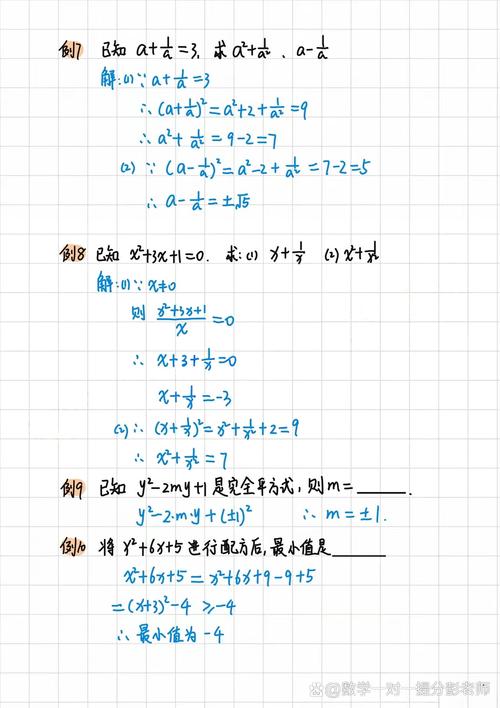 例7 已知 a+1/a=3, 求 a²+1/a²、a-1/a
解:(1)∵ a+1/a=3
∴ (a+1/a)²=a²+2+1/a²=9
∴ a²+1/a²=9-2=7
(2) ∵ (a-1/a)²=a²-2+1/a²=7-2=5
∴ a-1/a=±√5
例8 已知 x²+3x+1=0. 求:(1) x+1/x (2) x²+1/x²
解:(1)∵ x≠0
则 (x²+3x+1)/x=0
∴ x+3+1/x=0
x+1/x=-3
(2)∴ (x+1/x)²=x²+1/x²+2=9
∴ x²+1/x²=7
例9 已知 y²-2my+1是完全平方式,则m=______.
y²-2·m·y+(±1)² ∴ m=±1.
例10 将 x²+6x+5进行配方后,最小值是______
x²+6x+5=x²+6x+9-9+5
=(x+3)²-4 ≥-4
∴ 最小值为-4
@数学一对一提分彭老师